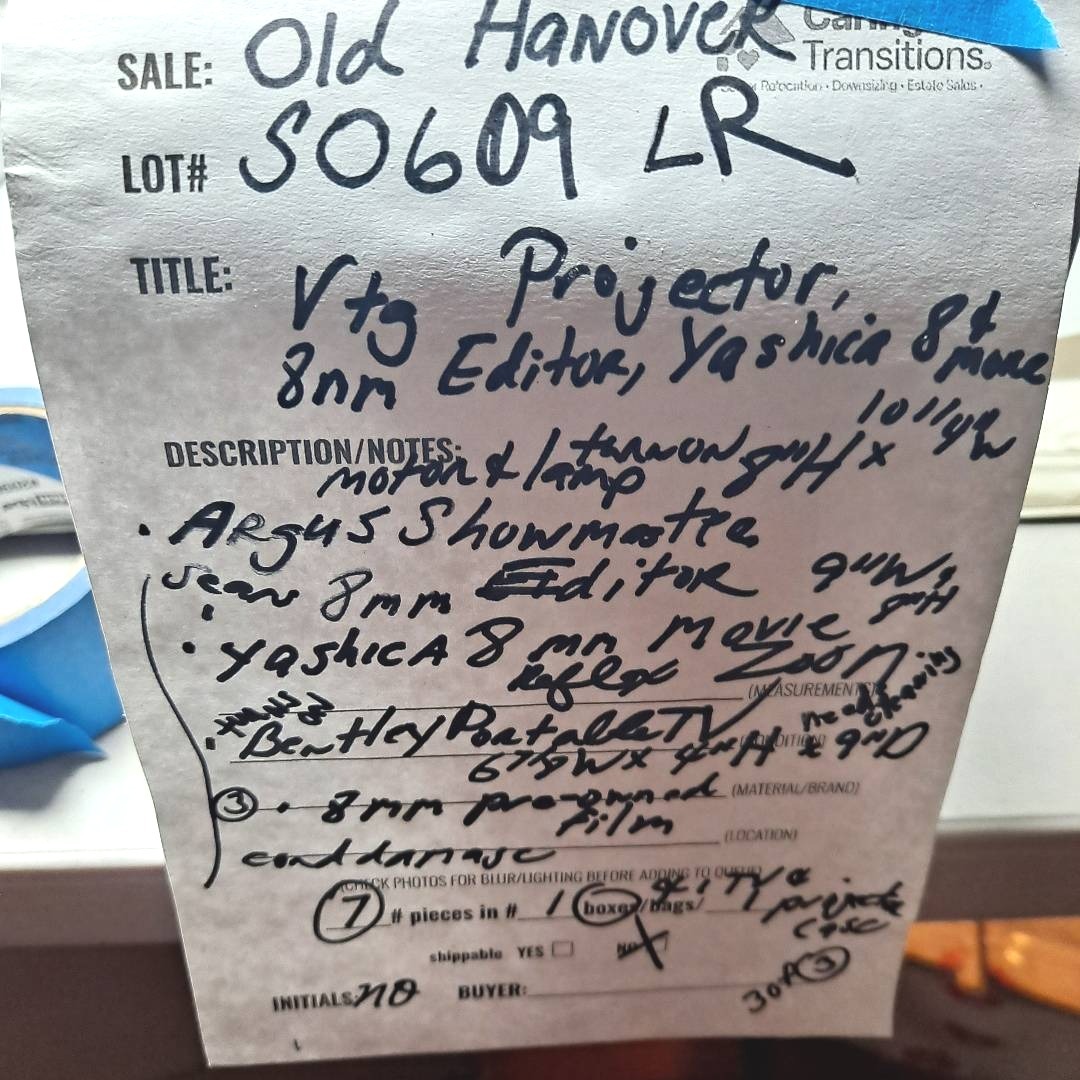 Caring
Transitions.
Relocation • Downsizing • Estate Sales •
SALE: Old Hanover
LOT# SO609 LR
TITLE: Vtg Projector,
8mm Editor, Yashica 8 &
more
DESCRIPTION/NOTES: turn on 8"H x
motor & lamp
• Argus Showmaster
Sears 8mm Editor 9"W x
8"H
• Yashica 8 mm Movie
Reflex Zoom
(MEASUREMENTS)
needs cleaning
• Bentley Portable TV (CONDITION)
9"D
③ • 8mm pre-owned (MATERIAL/BRAND)
film
(LOCATION)
cord damage
(CHECK PHOTOS FOR BLUR/LIGHTING BEFORE ADDING TO QUEUE)
7 # pieces in # 1 boxes/bags/ & 1 TV &
projector
case
shippable YES NO
3 of 3
INITIALS: NO BUYER: